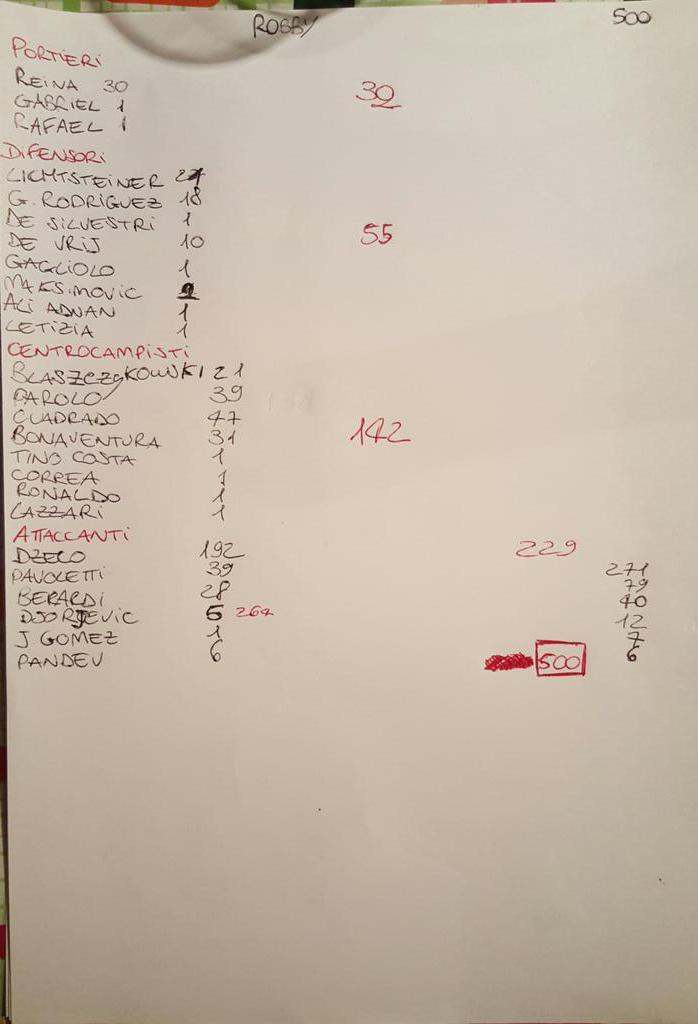 ROBBY 500
PORTIERI
REINA 30
GABRIEL 1 32
RAFAEL 1
DIFENSORI
LICHTSTEINER
G. RODRIGUEZ 18
DE SILVESTRI 1
DE VRIJ 10 55
GAGLIOLO 1
MAKSIMOVIC
ALI ADNAN 1
LETIZIA 1
CENTROCAMPISTI
BLASZCZYKOWSKI 21
PAROLO 39
CUADRADO 47
BONAVENTURA 31 142
TINO COSTA 1
CORREA 1
RONALDO 1
LAZZARI 1
ATTACCANTI
DZECO 192 229
PAVOLETTI 39 271
BERARDI 28 79
DJORJEVIC 5 267 40
J GOMEZ 1 12
PANDEV 6 7
500 6